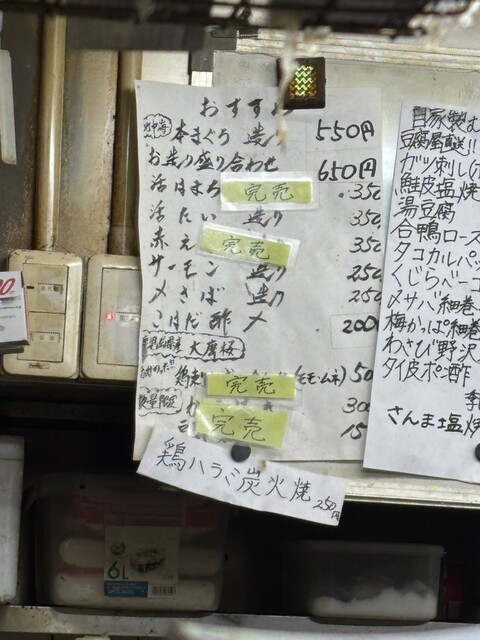 おすすめ
地中海 本まぐろ 造り 550円
お造り盛り合わせ 650円
活はまち 完売 350
活たい 造り 350
赤え 完売 350
サーモン 造り 250
〆さば 造り 250
こはだ酢〆 200
鹿児島県産 大摩桜
鶏 完売 (モモ・ムネ) 50
数量限定 30
完売 15
鶏ハラミ炭火焼 250円
自家製
豆腐屋直送!!
ガツ刺し
鮭皮塩焼
湯豆腐
合鴨ロース
タコカルパッ
くじらベーコ
〆サバ細巻
梅かっぱ細巻
わさび野沢
タイ皮ポン酢
さんま塩焼
6L